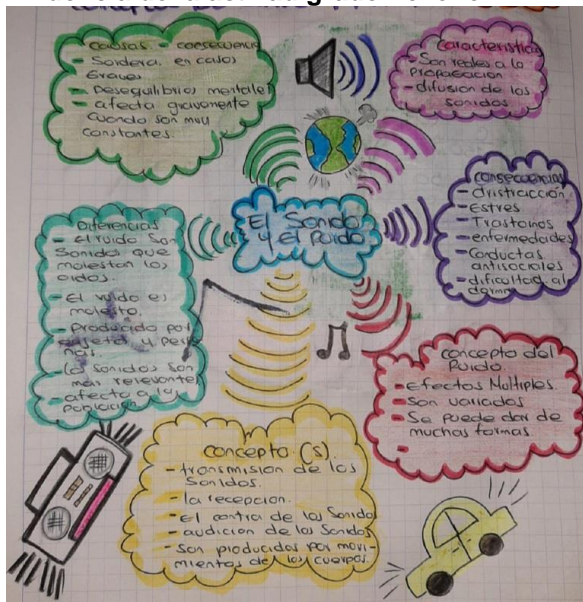 El Sonido
y el Ruido
causas - consecuencia
- Sordera, en casos
Graves
- Desequilibrios mentales
- afecta gravemente
cuando son muy
constantes.
Caracteristica
- Son reales a la
Propagacion
- difusion de los
sonidos
consecuencias
- distracción
- Estres
- Trastornos
- enfermedades
- Conductas
antisociales
- dificultad al
dormir
Diferencias
- El ruido Son
Sonidos que
molestan los
oidos.
- El ruido es
molesto.
- producido por
objeto y perso
nas.
- los Sonidos son
mas relevantes
- afecta a la
Poblacion
concepto del
Ruido
- Efectos Multiples.
- Son variados
- Se puede dar de
muchas formas.
concepto (s).
- transmision de los
Sonidos.
- la recepcion.
- El contra de los Sonidos
- audicion de los Sonidos
- son producidos por movi-
mientos de los cuerpos.